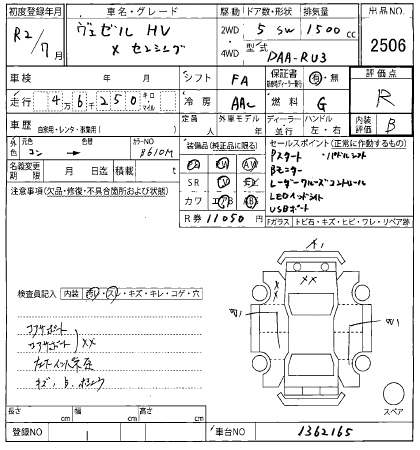 初度登録年月 車名・グレード 駆動 ドア数・形状 排気量 出品NO.
R2/7月 ヴェゼル HV 2WD 5 SW 1500cc 2506
X センシング 4WD 型式 DAA-RU3
車検 年 月 シフト FA 保証書 有・無 評価点
走行 46250 キロ・マイル 冷房 AAC 燃料 G R
車歴 自家用・レンタ・事業用( ) 定員 人 外車モデル 年 ディーラー 並行 ハンドル 左・右 内装評価 B
外色 元色 コン 色替 カラーNO B610M
装備品(純正品に限る) セールスポイント(正常に動作するもの)
名義変更期限 月 日迄 積載 t
Pスタート ・パドルシフト
Bモニター
レーダークルーズコントロール
LEDヘッドライト
USBポート
注意事項(欠品・修復・不具合箇所および状態)
SR
カワ
R券 11050円
Fガラス トビ石・キズ・ヒビ・ワレ・リペア跡
A1
検査員記入 内装 汚レ・スレ・キズ・キレ・コゲ・穴
XX
W1 W1
コアサポート
コアサポート XX
スペア
長さ cm 幅 cm 高さ cm
登録NO 車台NO 1362165